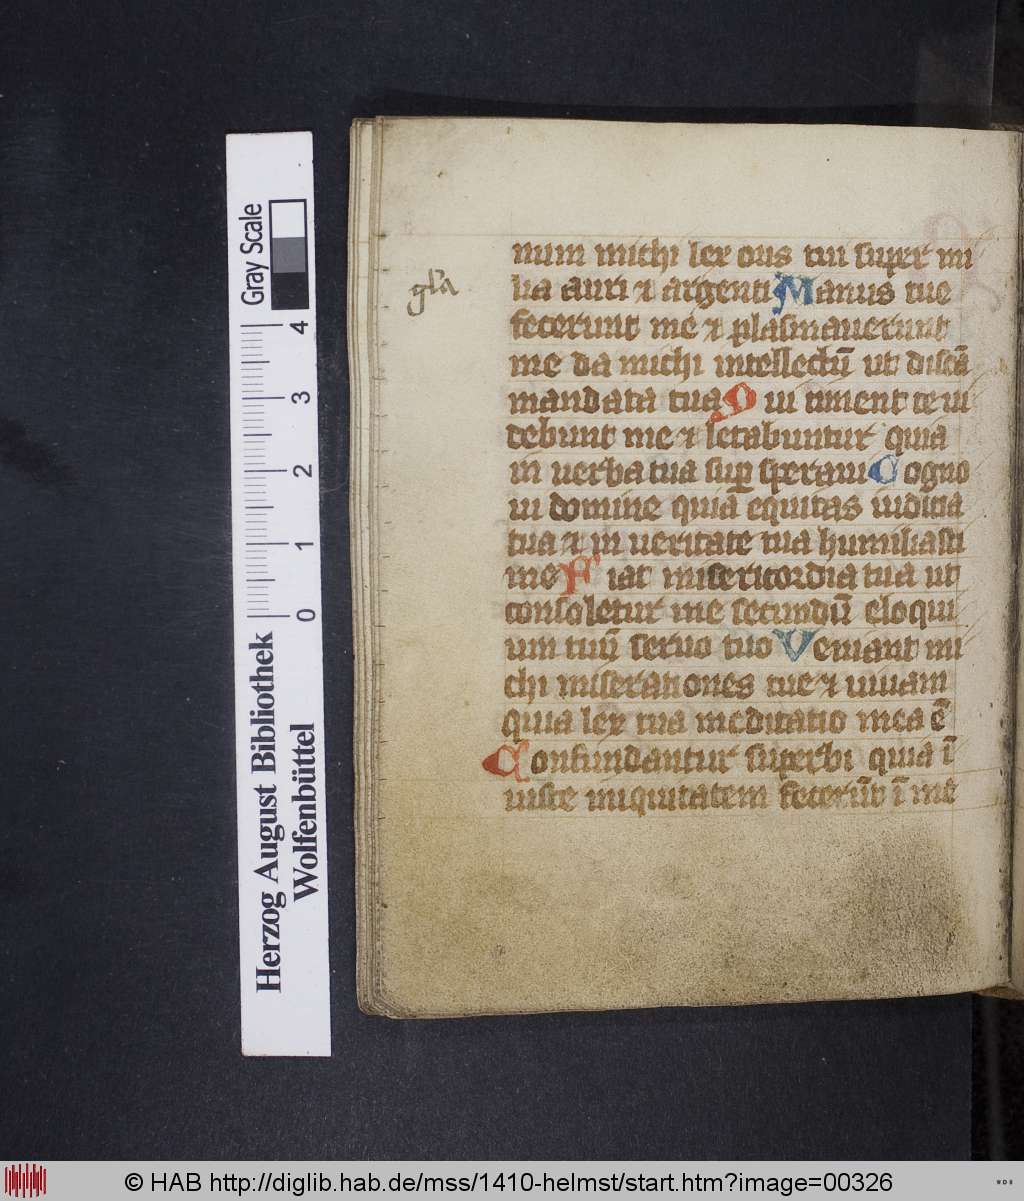 num michi lex oris tui super mi
lia auri ⁊ argenti Manus tue
fecerunt me ⁊ plasmauerunt
me da michi intellectū ut discā
mandata tua Qui timent te ui
debunt me ⁊ letabuntur quia
in uerba tua suꝑ speraui Cogno
ui domine quia equitas iudicia
tua ⁊ in ueritate tua humiliasti
me Fiat misericordia tua ut
consoletur me secundū eloqui
um tuū seruo tuo Veniant mi
chi miserationes tue ⁊ uiuam
quia lex tua meditatio mea ē
Confundantur superbi quia ī
iuste iniquitatem fecerūt ī me
gl'a
Gray Scale
4
3
2
1
0
Herzog August Bibliothek
Wolfenbüttel
© HAB http://diglib.hab.de/mss/1410-helmst/start.htm?image=00326